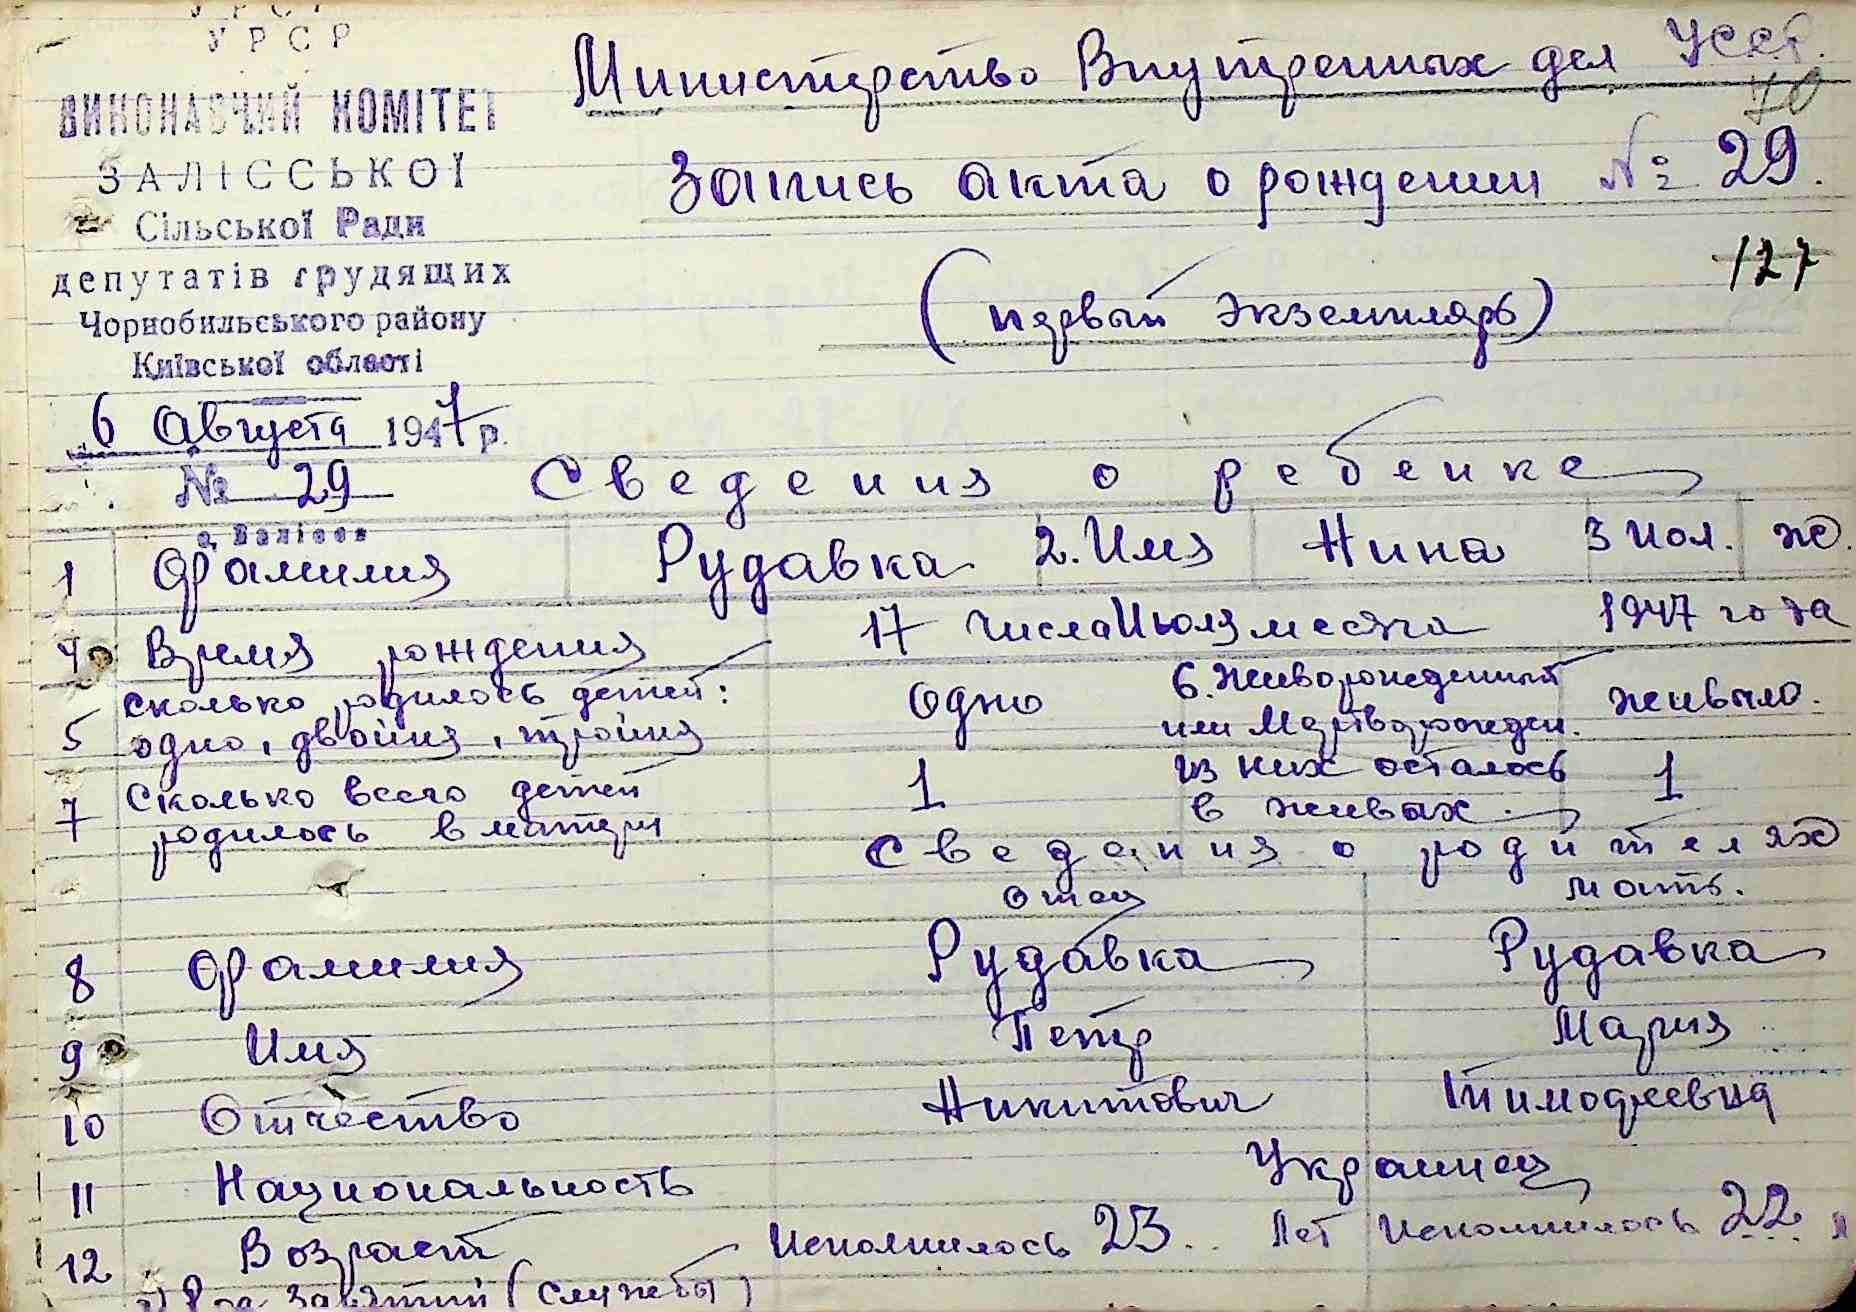 УРСР
ВИКОНАВЧИЙ КОМІТЕТ
ЗАЛІССЬКОЇ
Сільської Ради
депутатів трудящих
Чорнобильського району
Київської області
6 Августа 1947 р.
№ 29
с. Залісся
Министерство Внутренных дел УССР.
70
Запись акта о рождении № 29.
127
(первый экземпляръ)
Сведения о ребенке
1 Фамилия Рудавка 2. Имя Нина 3 пол. ж.
4 Время рождения 17 числа Июля месяца 1947 года
5 Сколько родилось детей: одно, двойня, тройня Одно 6. Живорожденный или Мертворожден. живыло.
7 Сколько всего детей родилось в матери 1 из них осталось в живых 1
Сведения о родителях
Отец Мать.
8 Фамилия Рудавка Рудавка
9 Имя Петр Мария
10 Отчество Никитович Тимофеевна
11 Национальность Украинец
12 Возраст Исполнилось 23 Лет Исполнилось 22 л
Род занятий (службы)